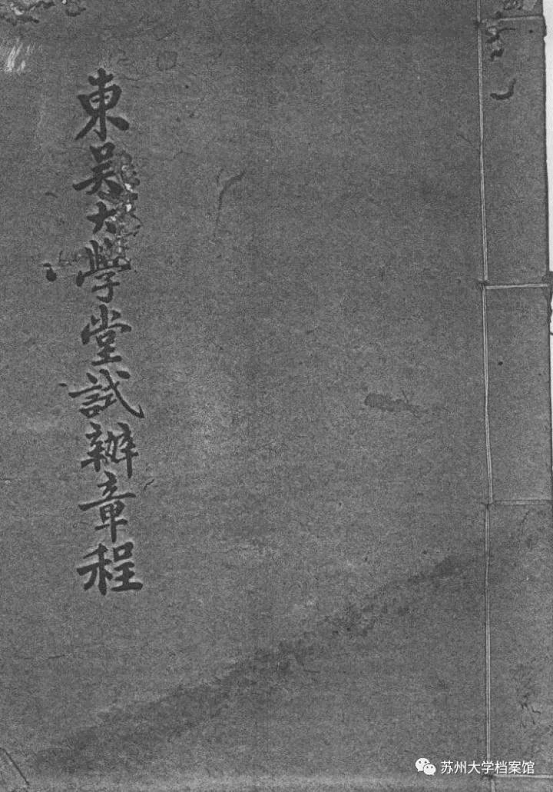 東吴大學堂試辦章程
苏州大学档案馆